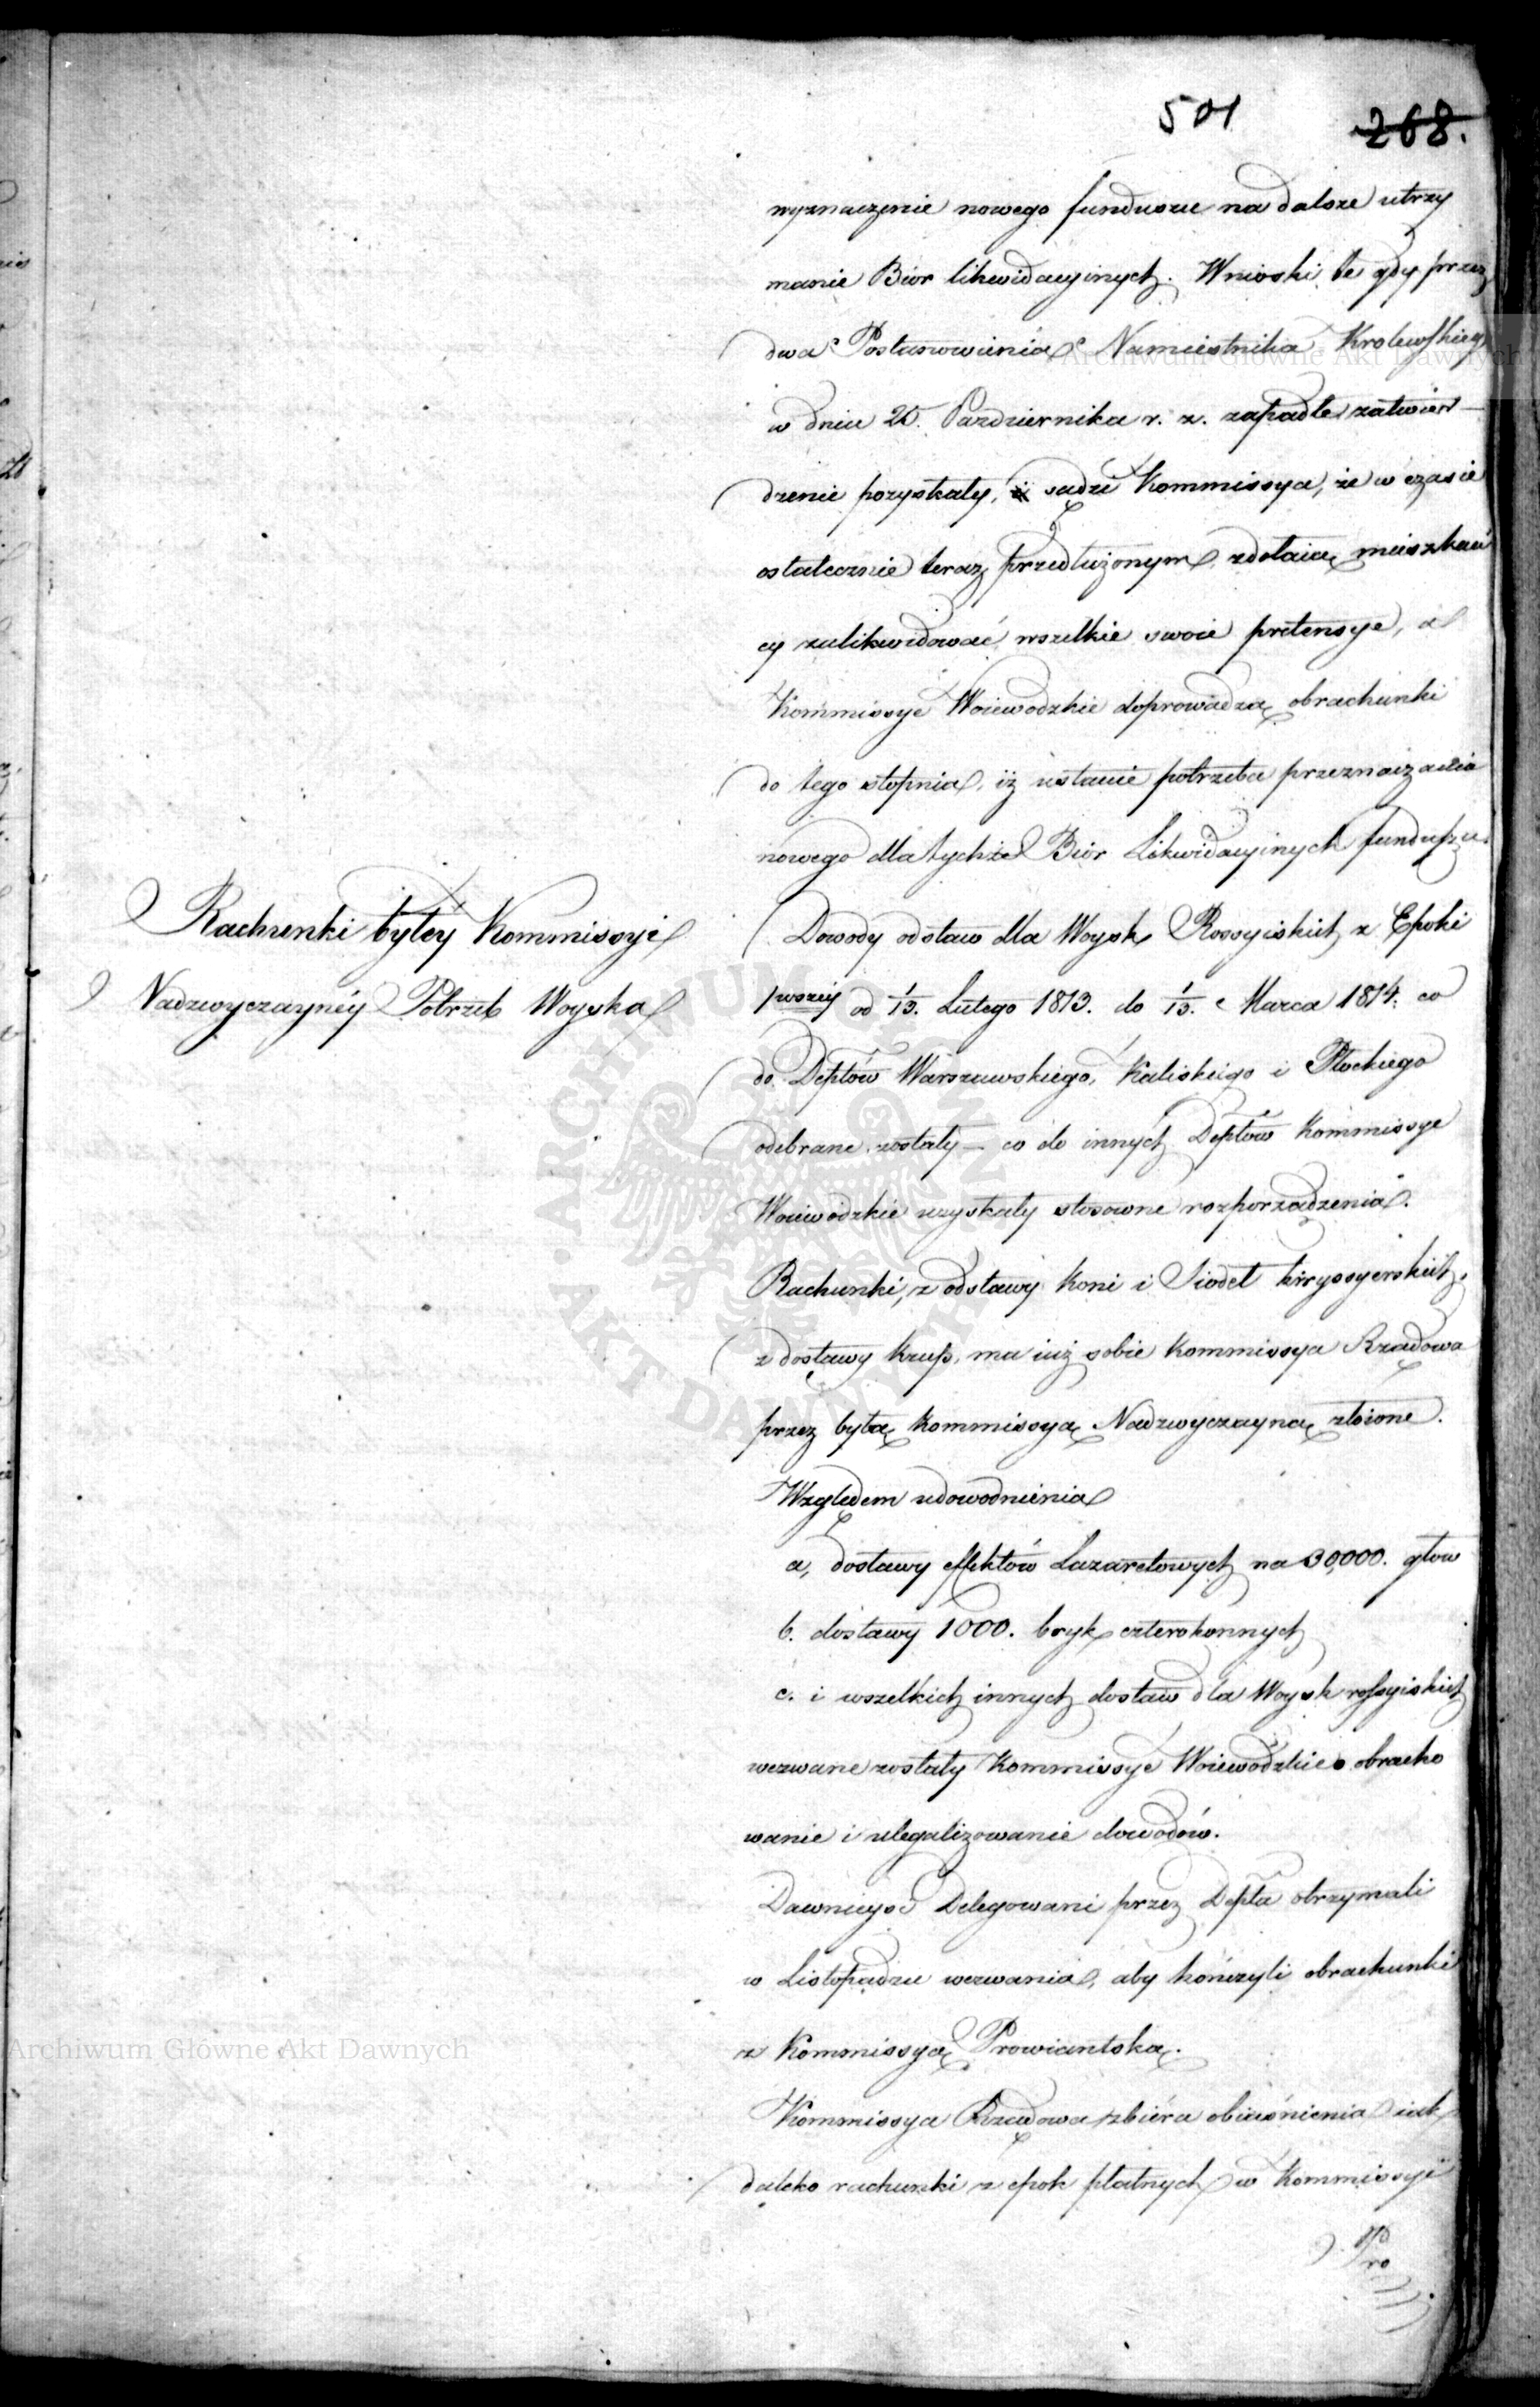 501 268.
wyznaczenie nowego funduszu na dalsze utrzy
manie Biór likwidacyinych. Wnioski te gdy przez
dwa Postanowienia Namiestnika Krolewskiego
w dniu 25. Pazdziernika r. z. zapadłe zatwier-
dzenie pozyskały, sądzi Kommissya, że w czasie
ostatecznie teraz przedłużonym zdołaią mieszkań
cy zalikwidować wszelkie swoie pretensye, a
Kommissye Woiewodzkie doprowadzą obrachunki
do tego stopnia, iż ustanie potrzeba przeznaczania
nowego dla tychże Biór Likwidacyinych funduszu.
Rachunki byłey Kommissyi
Nadzwyczayney Potrzeb Woyska
Dowody odstaw dla Woysk Rossyiskich z Epoki
1wszey od 1/13. Lutego 1813. do 1/13. Marca 1814. co
do Depttów Warszawskiego, Kaliskiego i Płockiego
odebrane zostały – co do innych Depttów Kommissye
Woiewodzkie uzyskały stosowne rozporządzenia.
Rachunki, z odstawy Koni i Siodeł kiryssyerskich,
z dostawy Krusz, ma iuż sobie Kommissya Rządowa
przez byłą Kommissyą Nadzwyczayną złożone.
Względem udowodnienia
a, dostawy effektów Lazaretowych na 30,000. głow
b. dostawy 1000. bryk czterokonnych
c. i wszelkich innych dostaw dla Woysk rossyiskich
wezwane zostały Kommissye Woiewodzkie o obracho
wanie i ulegalizowanie dowodów.
Dawnieysi Delegowani przez Deptta otrzymali
w Listopadzie wezwania, aby kończyli obrachunki
z Kommissyą Prowiantską.
Kommissya Rządowa zbiéra obiaśnienia iak
daleko rachunki z epok płatnych w Kommissyi
Pro
Archiwum Główne Akt Dawnych
Archiwum Główne Akt Dawnych
ARCHIWUM GŁÓWNE · AKT DAWNYCH ·